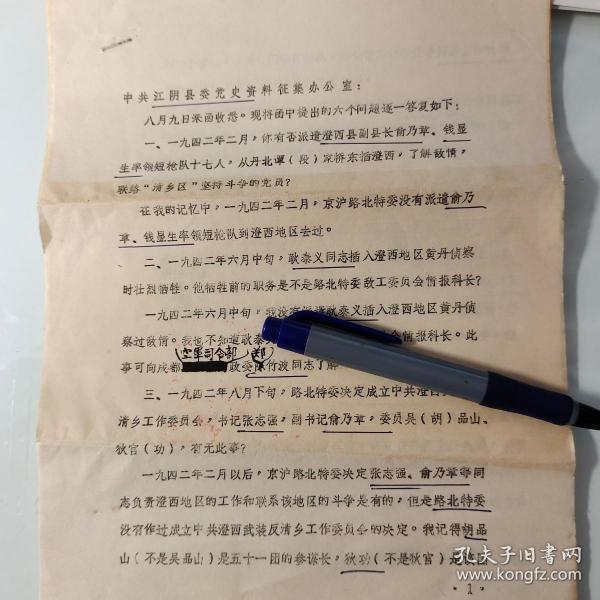 中共江阴县委党史资料征集办公室：
八月九日来函收悉。现将函中提出的六个问题逐一答复如下：
一、一九四二年二月，你有否派遣澄西县副县长俞乃章、钱显
生率领短枪队十七人，从丹北谭（段）家桥东插澄西，了解敌情，
联络“清乡区”坚持斗争的党员？
在我的记忆中，一九四二年二月，京沪路北特委没有派遣俞乃
章、钱显生率领短枪队到澄西地区去过。
二、一九四二年六月中旬，耿泰义同志插入澄西地区黄丹侦察
时壮烈牺牲。他牺牲前的职务是不是路北特委敌工委员会情报科长？
一九四二年六月中旬，我没有派遣耿泰义插入澄西地区黄丹侦
察过敌情。我也不知道耿泰 会情报科长。此
事可向成都 空军司令部 郑 政委 竹波同志了解
三、一九四二年八月下旬，路北特委决定成立中共澄西
清乡工作委员会，书记张志强，副书记俞乃章，委员吴（胡）品山、
狄官（功），有无此事？
一九四二年二月以后，京沪路北特委决定张志强、俞乃章等同
志负责澄西地区的工作和联系该地区的斗争是有的，但是路北特委
没有作过成立中共澄西武装反清乡工作委员会的决定。我记得胡品
山（不是吴品山）是五十一团的参谋长，狄功（不是狄官）是
·1·
孔夫子旧书网
www.kongfz.com